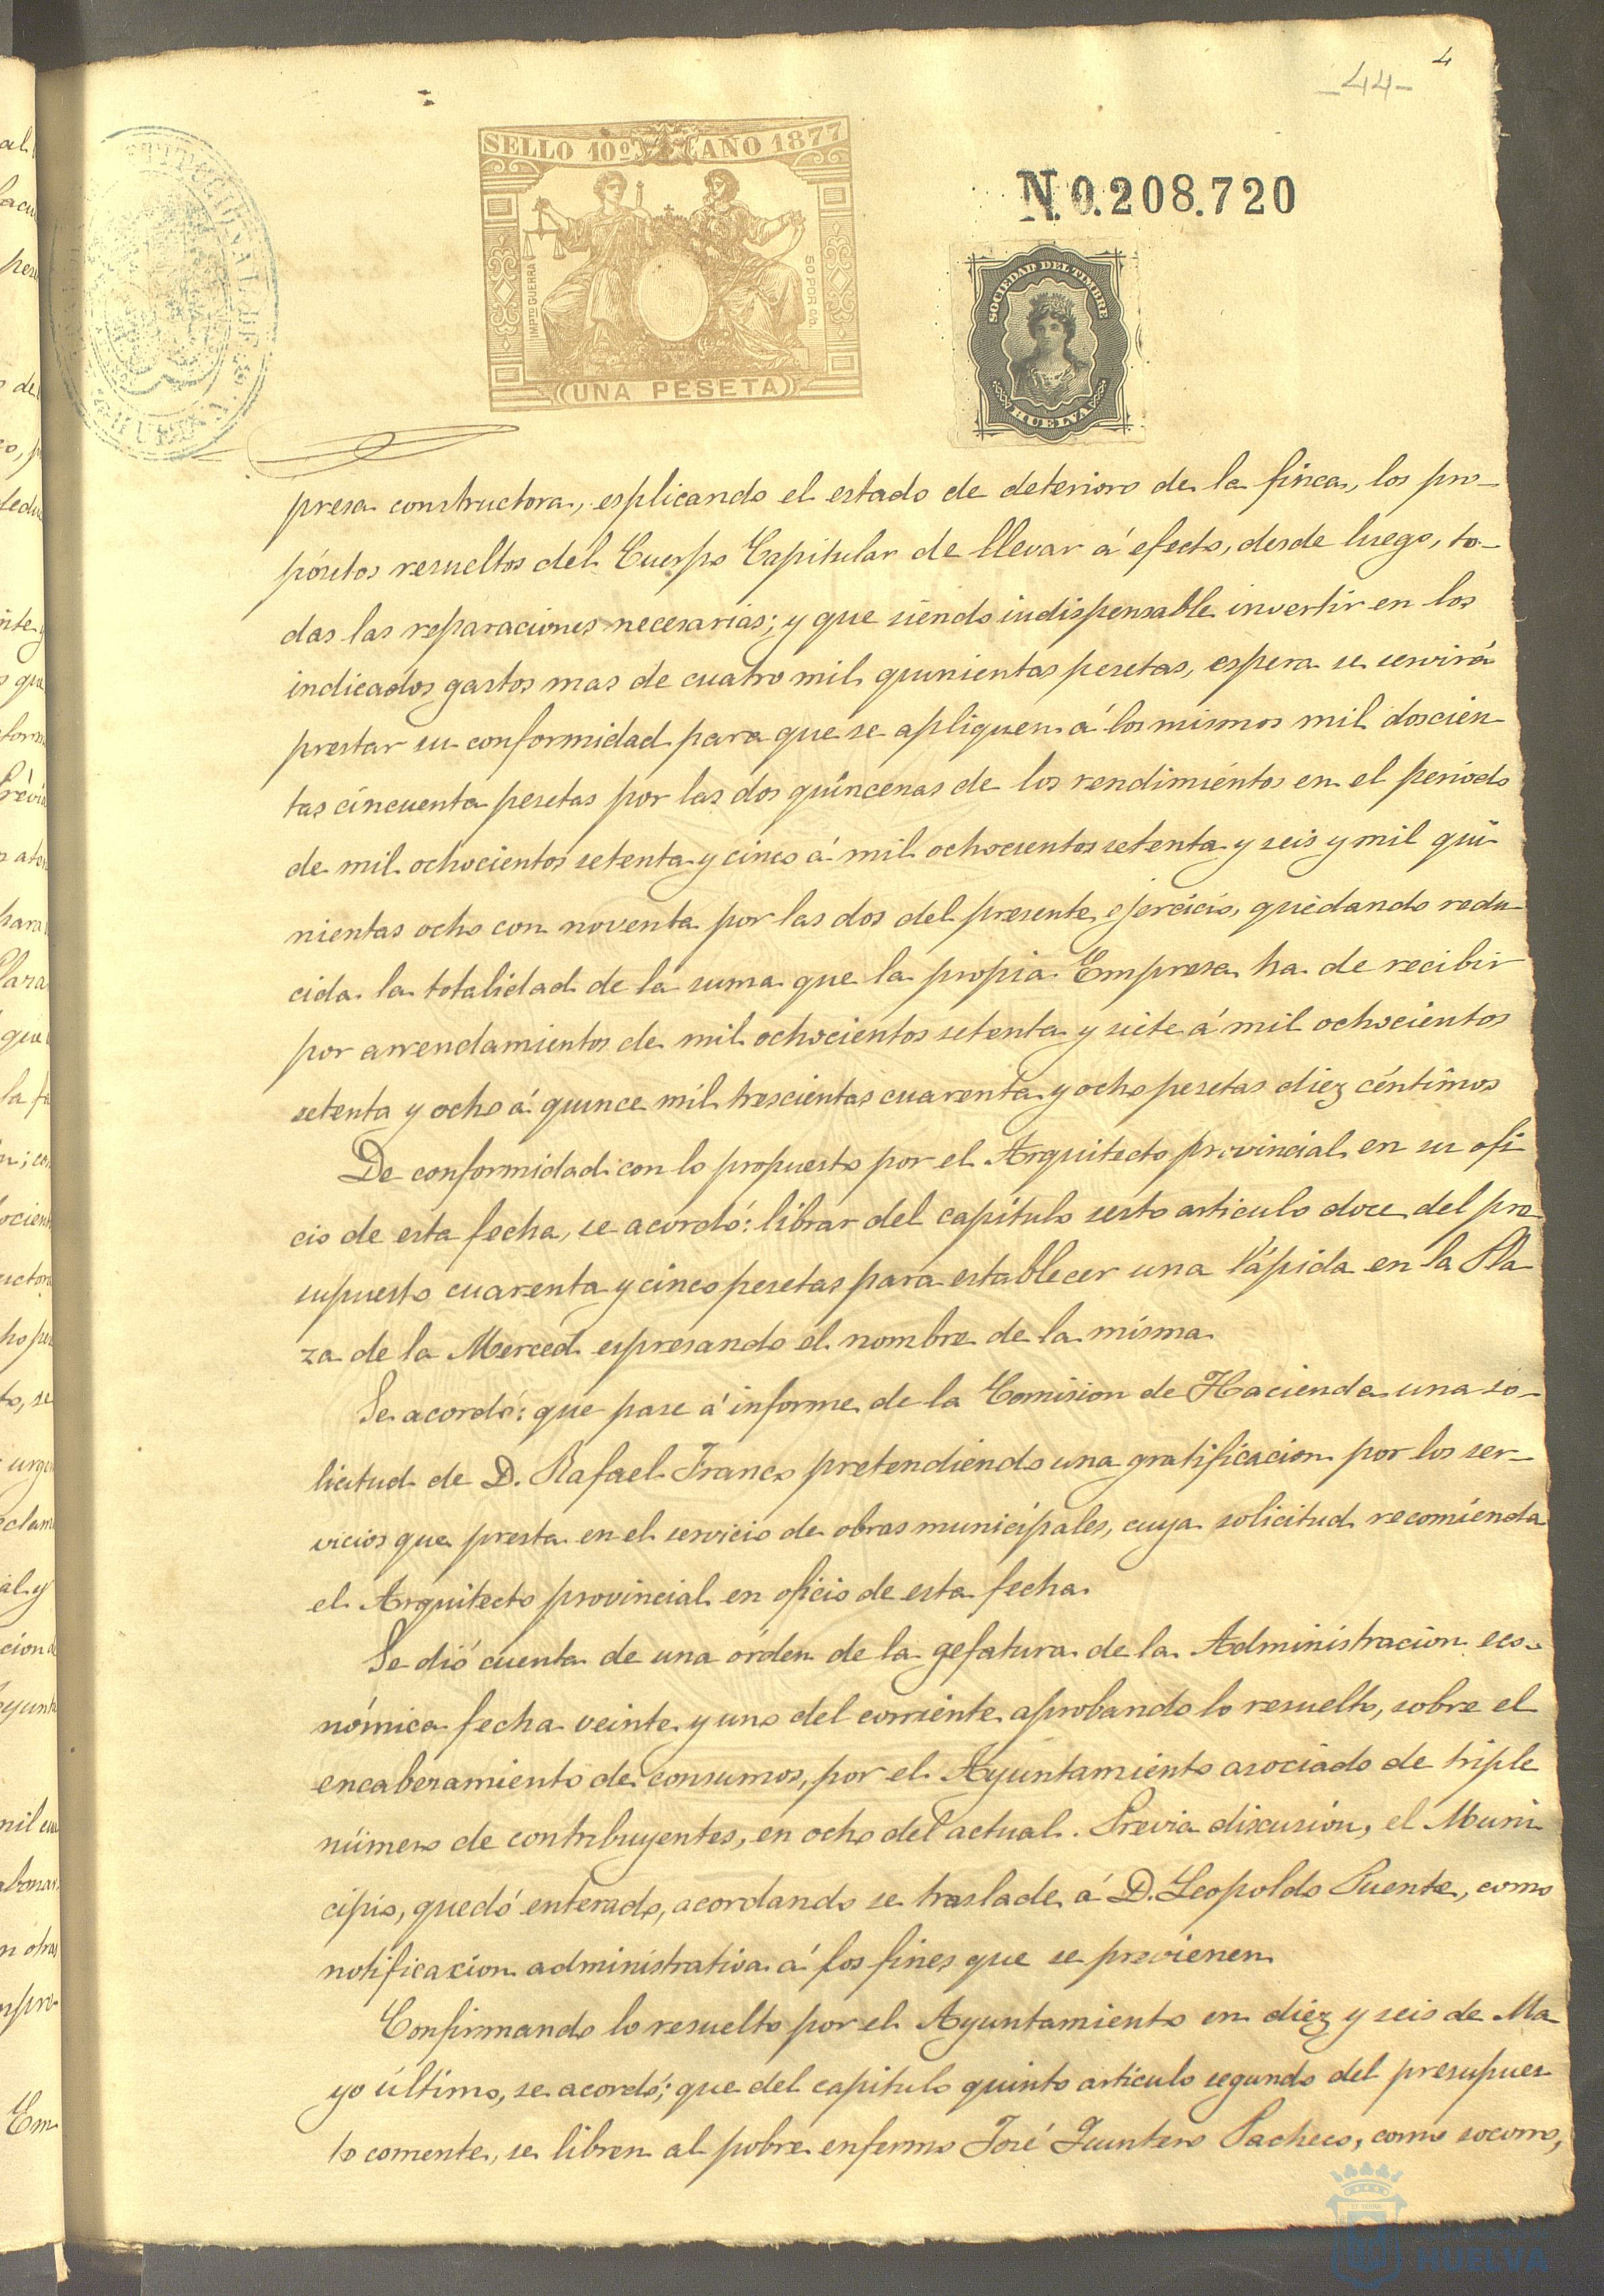 4
-44-
SELLO 10º AÑO 1877
IMPTO GUERRA
50 POR CO.
(UNA PESETA)
N.0.208.720
SOCIEDAD DEL TIMBRE
HUELVA
presa constructora, esplicando el estado de deterioro de la finca, los pro-
pósitos resueltos del Cuerpo Capitular de llevar á efecto, desde luego, to-
das las reparaciones necesarias; y que siendo indispensable invertir en los
indicados gastos mas de cuatro mil quinientas pesetas, espera se servirá
prestar su conformidad para que se apliquen á los mismos mil doscien-
tas cincuenta pesetas por las dos quincenas de los rendimientos en el periodo
de mil ochocientos setenta y cinco á mil ochocientos setenta y seis y mil qui-
nientas ocho con noventa por las dos del presente ejercicio, quedando redu-
cida la totalidad de la suma que la propia Empresa ha de recibir
por arrendamientos de mil ochocientos setenta y siete á mil ochocientos
setenta y ocho á quince mil trescientas cuarenta y ocho pesetas diez céntimos
De conformidad con lo propuesto por el Arquitecto provincial en su ofi
cio de esta fecha, se acordó: librar del capítulo sesto articulo doce del pre
supuesto cuarenta y cinco pesetas para establecer una lápida en la Pla
za de la Merced espresando el nombre de la misma.
Se acordó: que pase á informe de la Comision de Hacienda una so-
licitud de D. Rafael Franco pretendiendo una gratificacion por los ser-
vicios que presta en el servicio de obras municipales, cuya solicitud recomienda
el Arquitecto provincial en oficio de esta fecha.
Se dió cuenta de una órden de la gefatura de la Administracion eco-
nómica fecha veinte y uno del corriente aprobando lo resuelto, sobre el
encabezamiento de consumos, por el Ayuntamiento asociado de triple
número de contribuyentes, en ocho del actual. Previa discusion, el Muni
cipio, quedó enterado, acordando se traslade á D. Leopoldo Puente, como
notificacion administrativa á los fines que se previenen
Confirmando lo resuelto por el Ayuntamiento en diez y seis de Ma
yo último, se acordó; que del capitulo quinto articulo segundo del presupues
to corriente, se libren al pobre enfermo José Quintero Pacheco, como socorro,
HUELVA